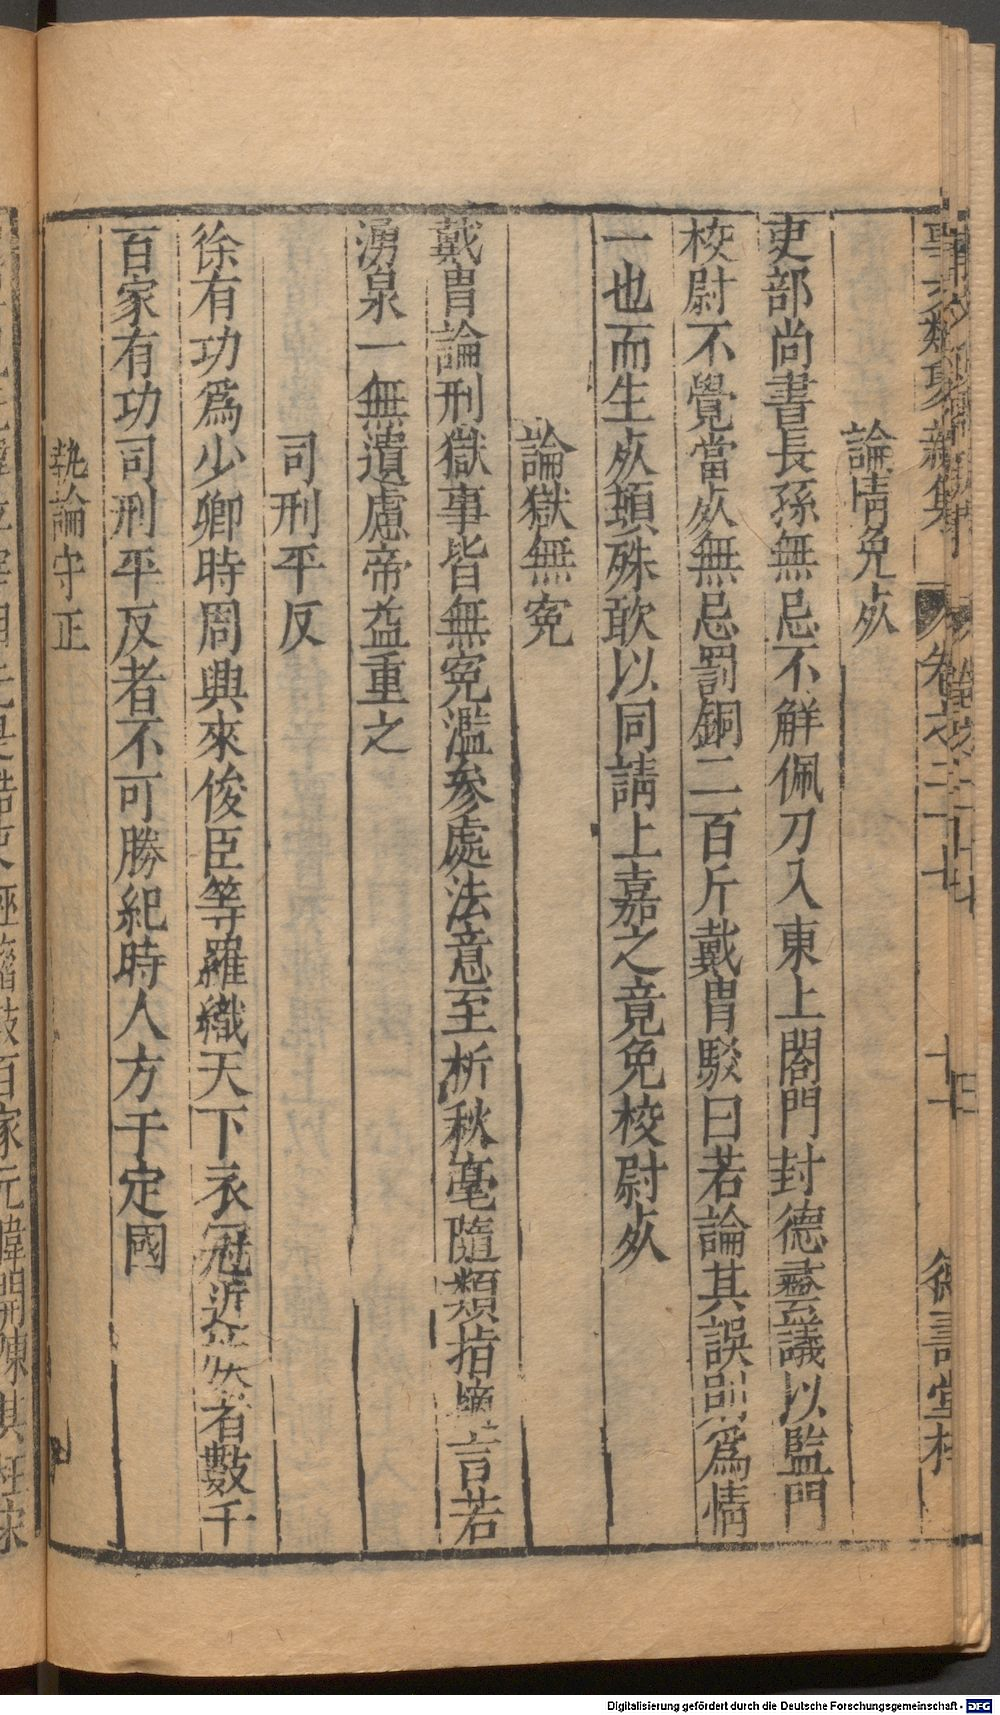 論情免㱙
吏部尚書長孫無忌不解佩刀入東上閤門封德彝議以監門
校尉不覺當㱙無忌罰銅二百斤戴胄駁曰若論其誤則爲情
一也而生㱙頓殊敢以同請上嘉之竟免校尉㱙
論獄無冤
戴胄論刑獄事皆無冤濫參處法意至析秋毫隨類指擿言若
湧泉一無遺慮帝益重之
司刑平反
徐有功爲少卿時周興來俊臣等羅織天下衣冠近族者數千
百家有功司刑平反者不可勝紀時人方于定國
執論守正
事文類聚新集 卷之二十七 德壽堂梓
百家元
Digitalisierung gefördert durch die Deutsche Forschungsgemeinschaft - DFG